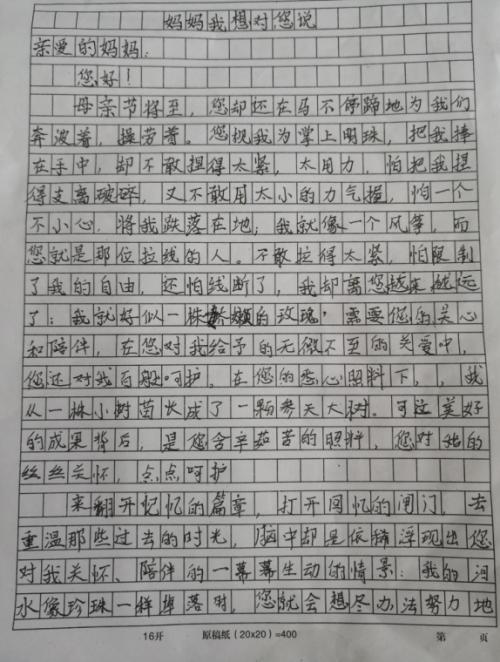 妈妈我想对您说
亲爱的妈妈：
您好！
母亲节将至，您却还在马不停蹄地为我们
奔波着，操劳着。您视我为掌上明珠，把我捧
在手中，却不敢捏得太紧，太用力，怕把我捏
得支离破碎，又不敢用太小的力气握，怕一个
不小心，将我跌落在地；我就像一个风筝，而
您就是那位拉线的人。不敢拉得太紧，怕限制
了我的自由，还怕线断了，我却离您越来越远
了；我就好似一株娇嫩的玫瑰，需要您的关心
和陪伴，在您对我给予的无微不至的关爱中，
您还对我百般呵护。在您的悉心照料下，，我
从一株小树苗长成了一颗参天大树。可这美好
的成果背后，是您含辛茹苦的照料，您对她的
丝丝关怀，点点呵护
来翻开记忆的篇章，打开回忆的闸门，去
重温那些过去的时光，脑中却是依稀浮现出您
对我关怀、陪伴的一幕幕生动的情景：我的泪
水像珍珠一样掉落时，您就会想尽办法努力地
16开 原稿纸（20x20）=400 第 页